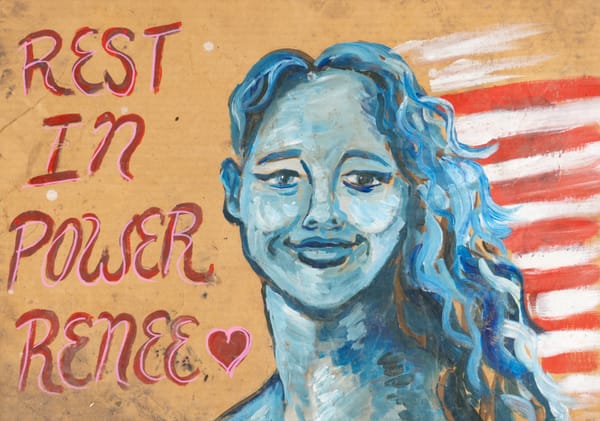 REST
IN
POWER
RENEE